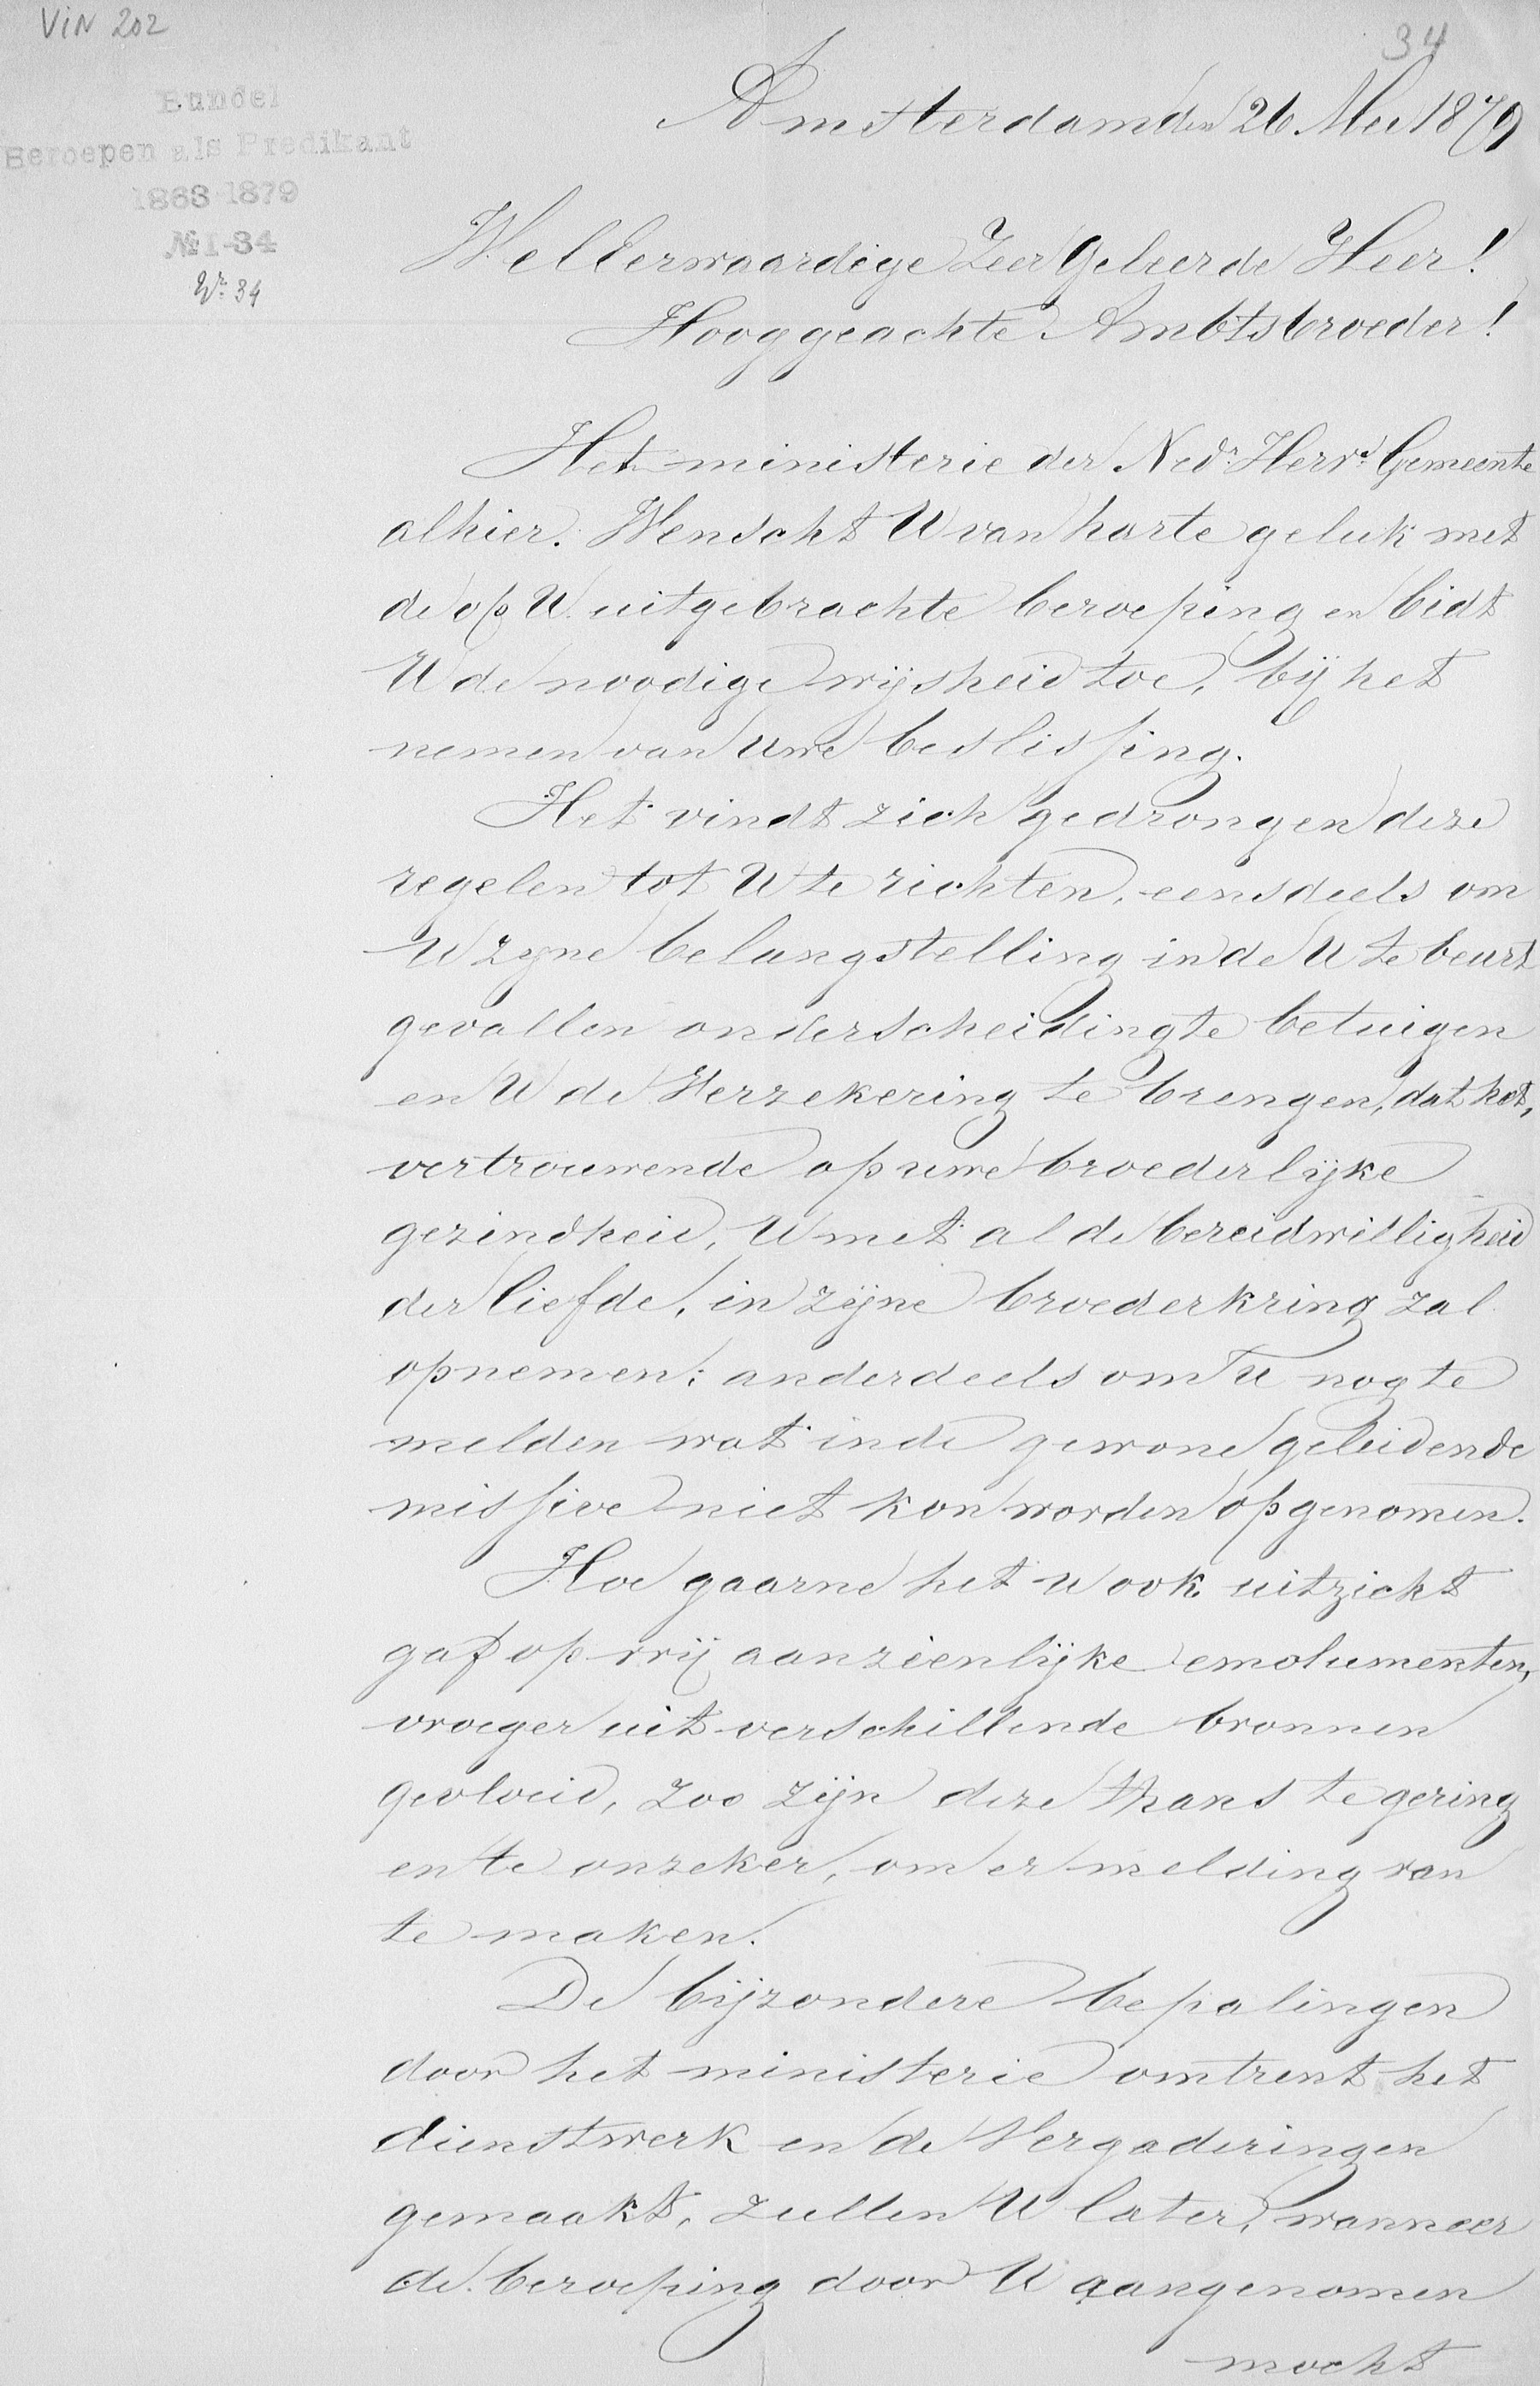 VIN 202
34
Bundel
Beroepen als Predikant
1863-1879
№ 1-34
Nr. 34
Amsterdam den 26 Mei 1879
WelEerwaardige Zeer Geleerde Heer!
Hooggeachte Ambtsbroeder!
Het ministerie der Nedr. Hervd. Gemeente
alhier. Wenscht U van harte geluk met
de op U. uitgebrachte beroeping en bidt
U de noodige wijsheid toe, bij het
nemen van Uwe beslissing.
Het vindt zich gedrongen deze
regelen tot U te richten, eensdeels om
U zijne belangstelling in de U te beurt
gevallen onderscheiding te betuigen
en U de Verzekering te brengen, dat het,
vertrouwende op uwe broederlijke
gezindheid, U met al de bereidwilligheid
der liefde, in zijne broederkring zal
opnemen; anderdeels om U nog te
melden wat in de gewone geleidende
missive niet kon worden opgenomen.
Hoe gaarne het U ook uitzicht
gaf op vrij aanzienlijke emolumenten,
vroeger uit verschillende bronnen
gevloeid, zoo zijn deze thans te gering
en te onzeker, om er melding van
te maken.
De bijzondere bepalingen
door het ministerie omtrent het
dienstwerk en de Vergaderingen
gemaakt, zullen U later, wanneer
de beroeping door U aangenomen
mocht